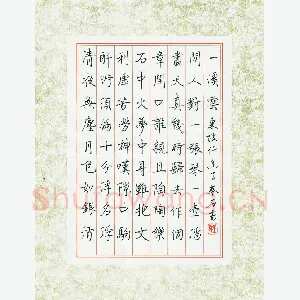 清夜無塵月色如銀酒
斟時須滿十分浮名浮
利虛苦勞神嘆隙中駒
石中火夢中身雖抱文
章開口誰親且陶陶樂
盡天真幾時歸去作個
閒人對一張琴一壺酒
一溪雲 東坡行香子